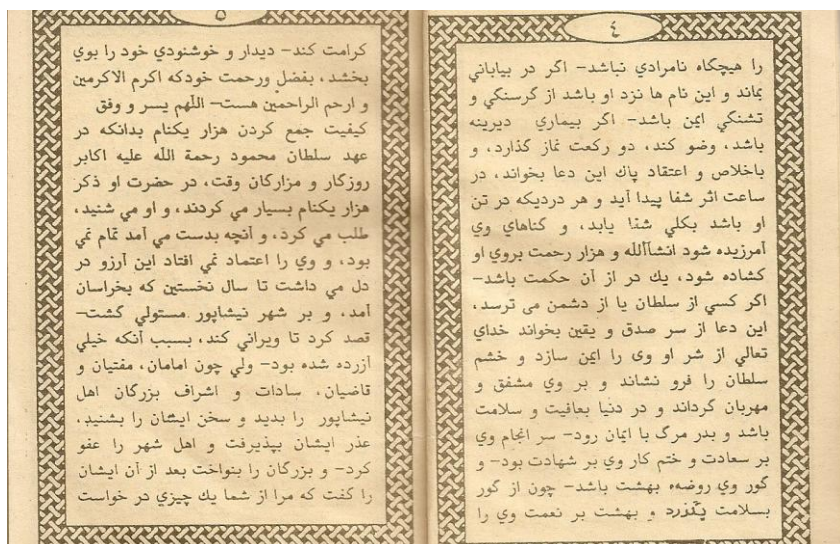 ٤
را هیچگاه نامرادي نباشد– اگر در بیاباني
بماند و این نام ها نزد او باشد از گرسنگي و
تشنگي ایمن باشد– اگر بیماري دیرینه
باشد، وضو کند، دو رکعت نماز گذارد، و
باخلاص و اعتقاد پاك این دعا بخواند، در
ساعت اثر شفا پیدا آید و هر دردیکه در تن
او باشد بکلي شفا یابد، و کناهاي وي
آمرزیده شود انشاآلله و هزار رحمت بروي او
کشاده شود، یك در از آن حکمت باشد–
اگر کسي از سلطان یا از دشمن می ترسد،
این دعا از سر صدق و یقین بخواند خداي
تعالي از شر او وی را ایمن سازد و خشم
سلطان را فرو نشاند و بر وي مشفق و
مهربان گرداند و در دنیا بعافیت و سلامت
باشد و بدر مرگ با ایمان رود– سر انجام وي
بر سعادت و ختم کار وي بر شهادت بود– و
گور وي روضهء بهشت باشد– چون از گور
بسلامت پگذرد و بهشت بر نعمت وي را
۵
کرامت کند– دیدار و خوشنودي خود را بوي
بخشد، بفضل ورحمت خودکه اکرم الاکرمین
و ارحم الراحمین هست– اللّهم یسر و وفق
کیفیت جمع کردن هزار یکنام بدانکه در
عهد سلطان محمود رحمة الله علیه اکابر
روزگار و مزارکان وقت، در حضرت او ذکر
هزار یکنام بسیار مي کردند، و او مي شنید،
طلب مي کرد، و آنچه بدست مي آمد تمام نمي
بود، و وي را اعتماد نمي افتاد این آرزو در
دل مي داشت تا سال نخستین که بخراسان
آمد، و بر شهر نیشاپور مستولي گشت–
قصد کرد تا ویراني کند، بسبب آنکه خیلي
آزرده شده بود– ولي چون امامان، مفتیان و
قاضیان، سادات و اشراف بزرگان اهل
نیشاپور را بدید و سخن ایشان را بشنید،
عذر ایشان بپذیرفت و اهل شهر را عفو
کرد– و بزرگان را بنواخت بعد از آن ایشان
را کفت که مرا از شما یك چیزي در خواست